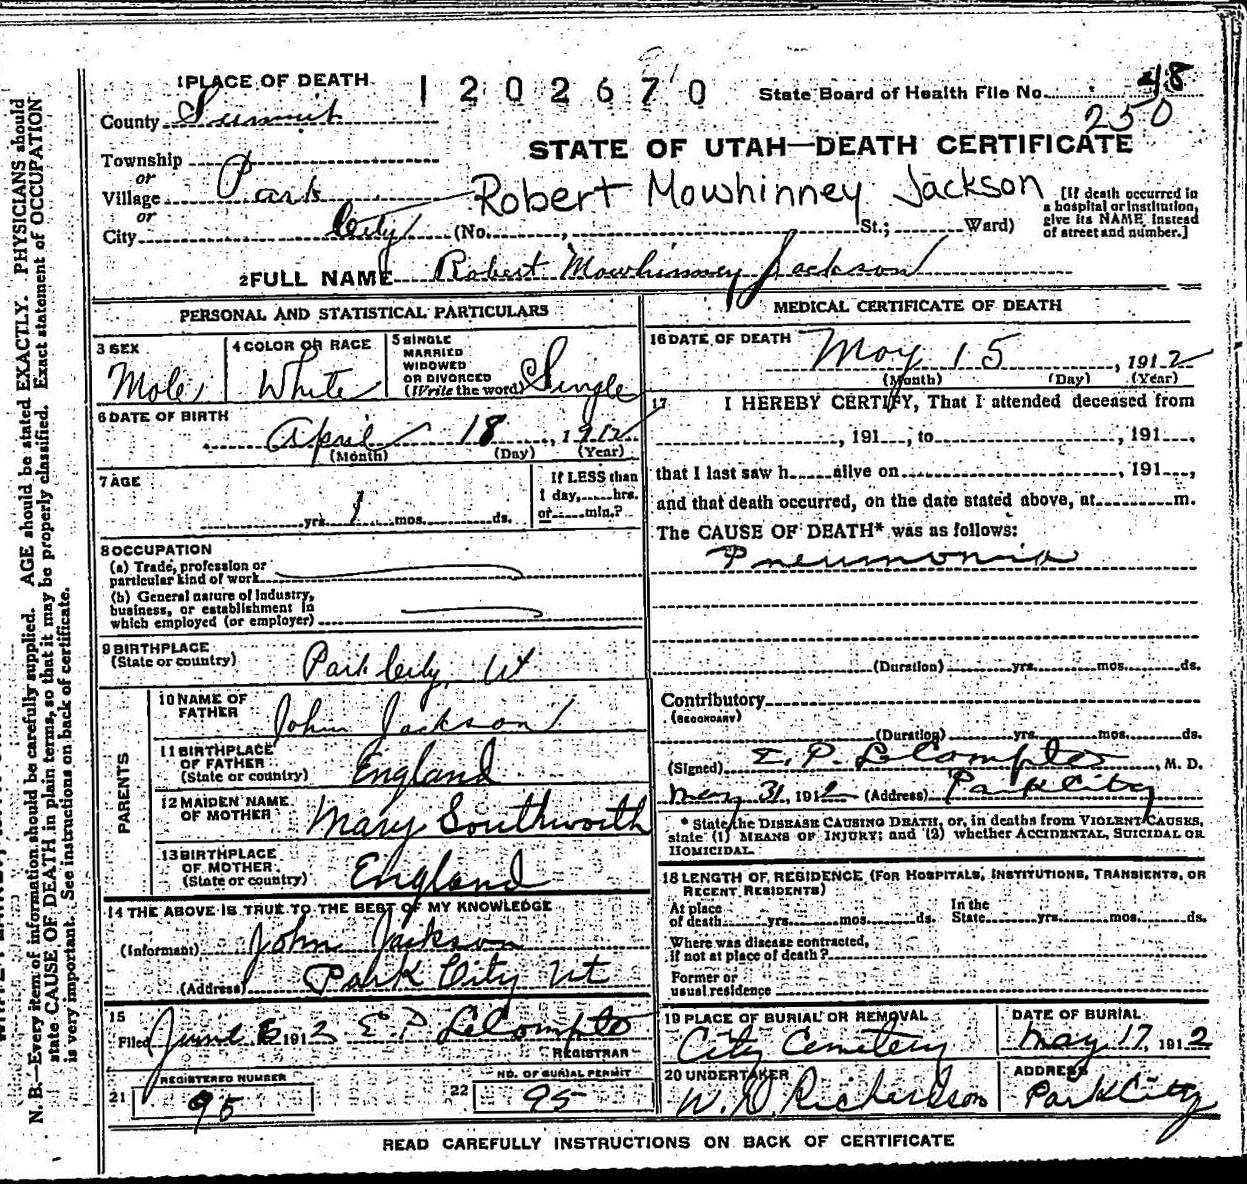 1 PLACE OF DEATH
1202670
State Board of Health File No. 48
250
County Summit
STATE OF UTAH—DEATH CERTIFICATE
Township
or
Village Park
Robert Mowhinney Jackson
[If death occurred in
a hospital or institution,
give its NAME instead
of street and number.]
or
City City (No. , St.; Ward)
2 FULL NAME Robert Mowhinney Jackson
PERSONAL AND STATISTICAL PARTICULARS
3 SEX
Male
4 COLOR OR RACE
White
5 SINGLE
MARRIED
WIDOWED
OR DIVORCED
(Write the word) Single
6 DATE OF BIRTH
April 18, 1912
(Month) (Day) (Year)
7 AGE
yrs. 1 mos. ds.
If LESS than
1 day, hrs.
or min.?
8 OCCUPATION
(a) Trade, profession or
particular kind of work
(b) General nature of industry,
business, or establishment in
which employed (or employer)
9 BIRTHPLACE
(State or country)
Park City, Ut
PARENTS
10 NAME OF
FATHER
John Jackson
11 BIRTHPLACE
OF FATHER
(State or country)
England
12 MAIDEN NAME
OF MOTHER
Mary Southworth
13 BIRTHPLACE
OF MOTHER
(State or country)
England
14 THE ABOVE IS TRUE TO THE BEST OF MY KNOWLEDGE
(Informant) John Jackson
(Address) Park City Ut
15
Filed June 6 1912 E. P. LeCompte
REGISTRAR
REGISTERED NUMBER
21 95
NO. OF BURIAL PERMIT
22 95
MEDICAL CERTIFICATE OF DEATH
16 DATE OF DEATH
May 15, 1912
(Month) (Day) (Year)
17 I HEREBY CERTIFY, That I attended deceased from
, 191 , to , 191 ,
that I last saw h alive on , 191 ,
and that death occurred, on the date stated above, at m.
The CAUSE OF DEATH* was as follows:
Pneumonia
(Duration) yrs. mos. ds.
Contributory
(SECONDARY)
(Duration) yrs. mos. ds.
(Signed) E. P. LeCompte, M. D.
May 31, 1912 (Address) Park City
* State the DISEASE CAUSING DEATH, or, in deaths from VIOLENT CAUSES,
state (1) MEANS OF INJURY; and (2) whether ACCIDENTAL, SUICIDAL OR
HOMICIDAL.
18 LENGTH OF RESIDENCE (FOR HOSPITALS, INSTITUTIONS, TRANSIENTS, OR
RECENT RESIDENTS)
At place
of death yrs. mos. ds.
In the
State yrs. mos. ds.
Where was disease contracted,
if not at place of death?
Former or
usual residence
19 PLACE OF BURIAL OR REMOVAL
City Cemetery
DATE OF BURIAL
May 17, 1912
20 UNDERTAKER
W. D. Richardson
ADDRESS
Park City
READ CAREFULLY INSTRUCTIONS ON BACK OF CERTIFICATE
N. B.—Every item of information should be carefully supplied. AGE should be stated EXACTLY. PHYSICIANS should
state CAUSE OF DEATH in plain terms, so that it may be properly classified. Exact statement of OCCUPATION
is very important. See instructions on back of certificate.